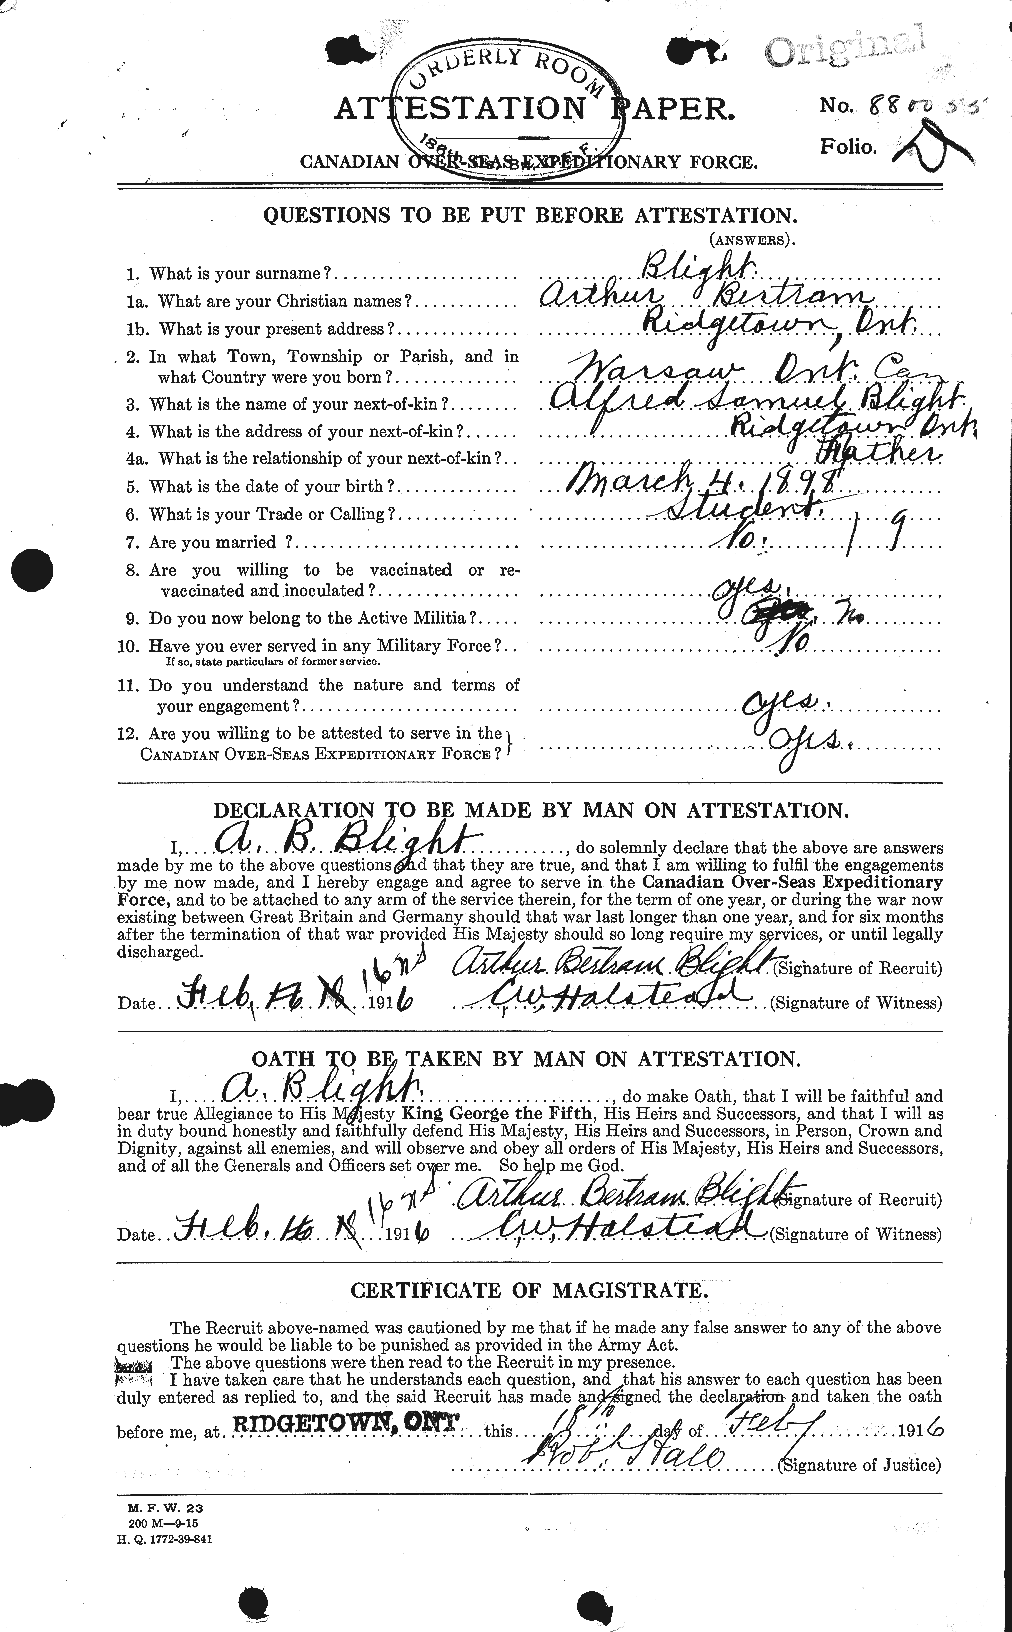 Original
ORDERLY ROOM
ATTESTATION PAPER.
No. 880055
Folio.
CANADIAN OVER-SEAS EXPEDITIONARY FORCE.
QUESTIONS TO BE PUT BEFORE ATTESTATION.
(ANSWERS).
1. What is your surname? Blight
1a. What are your Christian names? Arthur Bertram
1b. What is your present address? Ridgetown, Ont.
2. In what Town, Township or Parish, and in
what Country were you born? Warsaw Ont. Can
3. What is the name of your next-of-kin? Alfred Samuel Blight
4. What is the address of your next-of-kin? Ridgetown Ont.
4a. What is the relationship of your next-of-kin? Father
5. What is the date of your birth? March 4. 1898
6. What is your Trade or Calling? Student.
7. Are you married ? No. 1 9
8. Are you willing to be vaccinated or re-
vaccinated and inoculated? yes.
9. Do you now belong to the Active Militia? No
10. Have you ever served in any Military Force? No
If so, state particulars of former service.
11. Do you understand the nature and terms of
your engagement? yes.
12. Are you willing to be attested to serve in the
CANADIAN OVER-SEAS EXPEDITIONARY FORCE? yes.
DECLARATION TO BE MADE BY MAN ON ATTESTATION.
I, A. B. Blight, do solemnly declare that the above are answers
made by me to the above questions and that they are true, and that I am willing to fulfil the engagements
by me now made, and I hereby engage and agree to serve in the Canadian Over-Seas Expeditionary
Force, and to be attached to any arm of the service therein, for the term of one year, or during the war now
existing between Great Britain and Germany should that war last longer than one year, and for six months
after the termination of that war provided His Majesty should so long require my services, or until legally
discharged.
Arthur Bertram Blight (Signature of Recruit)
Date Feb. 16 1916 C.W. Halstead (Signature of Witness)
OATH TO BE TAKEN BY MAN ON ATTESTATION.
I, A. Blight, do make Oath, that I will be faithful and
bear true Allegiance to His Majesty King George the Fifth, His Heirs and Successors, and that I will as
in duty bound honestly and faithfully defend His Majesty, His Heirs and Successors, in Person, Crown and
Dignity, against all enemies, and will observe and obey all orders of His Majesty, His Heirs and Successors,
and of all the Generals and Officers set over me. So help me God.
Arthur Bertram Blight (Signature of Recruit)
Date Feb. 16 1916 C.W. Halstead (Signature of Witness)
CERTIFICATE OF MAGISTRATE.
The Recruit above-named was cautioned by me that if he made any false answer to any of the above
questions he would be liable to be punished as provided in the Army Act.
The above questions were then read to the Recruit in my presence.
I have taken care that he understands each question, and that his answer to each question has been
duly entered as replied to, and the said Recruit has made and signed the declaration and taken the oath
before me, at RIDGETOWN, ONT this 18th day of Feby 1916
(Signature of Justice)
M. F. W. 23
200 M—9-15
H. Q. 1772-39-841